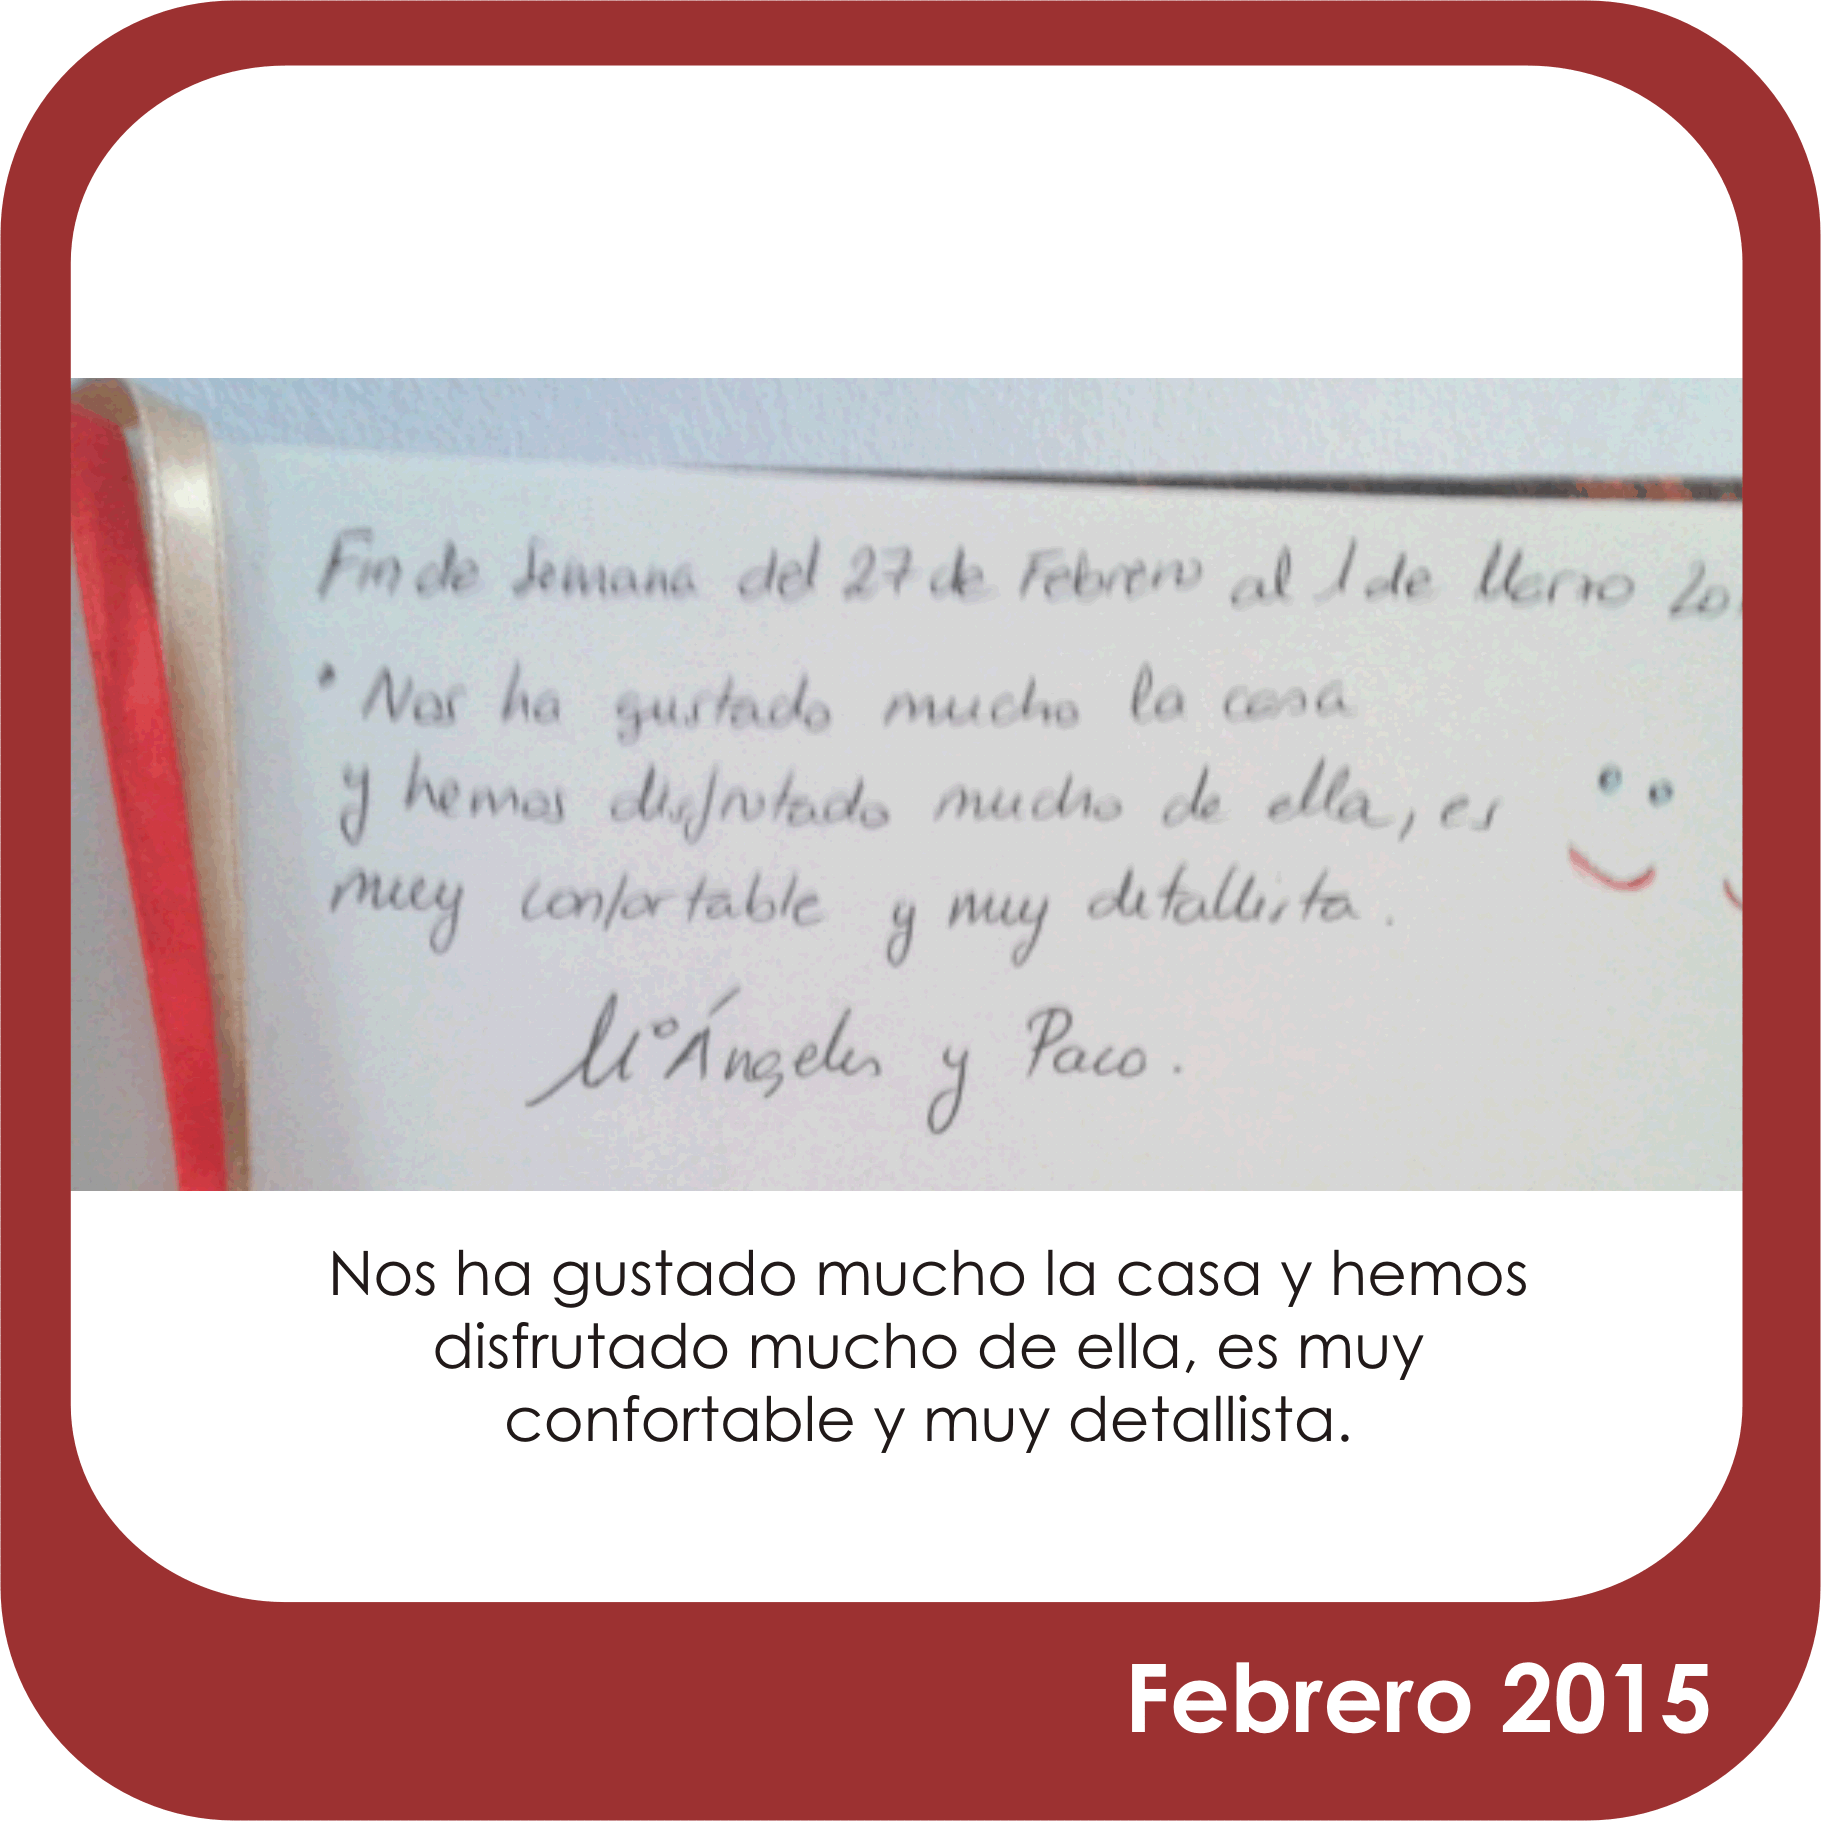 Fin de Semana del 27 de Febrero al 1 de Marzo 20
• Nos ha gustado mucho la casa
y hemos disfrutado mucho de ella, es
muy confortable y muy detallista.
Mª Ángeles y Paco.
Nos ha gustado mucho la casa y hemos
disfrutado mucho de ella, es muy
confortable y muy detallista.
Febrero 2015